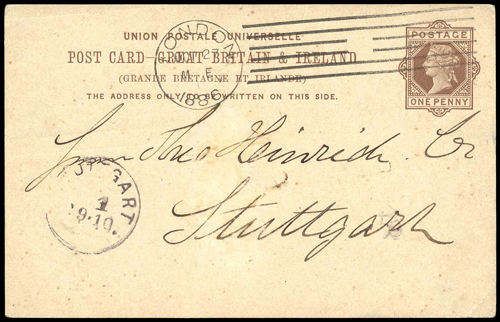 UNION POSTALE UNIVERSELLE
POST CARD—GREAT BRITAIN & IRELAND
(GRANDE BRETAGNE ET IRLANDE)
THE ADDRESS ONLY TO BE WRITTEN ON THIS SIDE.
POSTAGE
ONE PENNY
LONDON
27
M E
1886
Heinrich
Stuttgart
STUTTGART
1
9-10